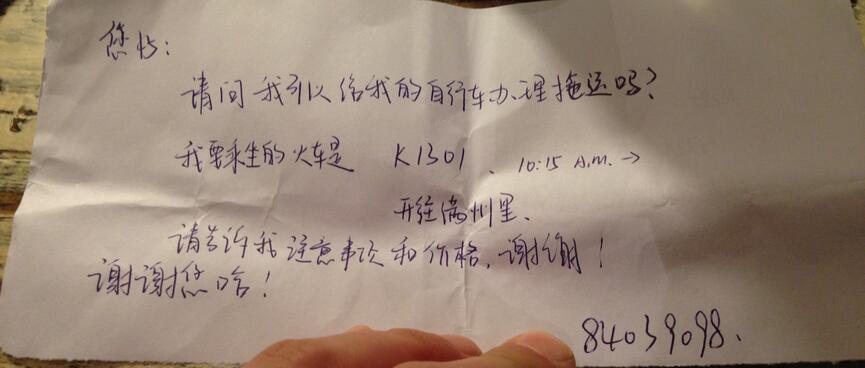 您好：
请问我可以给我的自行车办理拖运吗？
我要乘坐的火车是 K1301、10:15 A.M. →
开往满州里、
请告诉我注意事项和价格，谢谢！
谢谢您哈！
84039098、